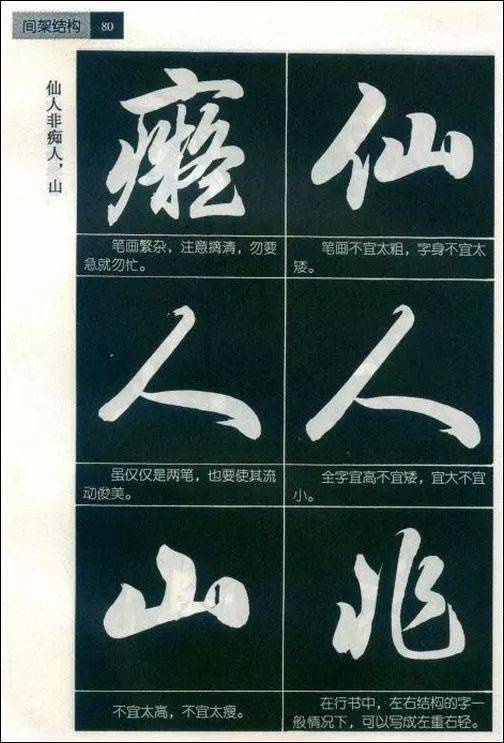 间架结构 80
仙人非痴人，山
仙
笔画不宜太粗，字身不宜太
矮。
人
全字宜高不宜矮，宜大不宜
小。
非
在行书中，左右结构的字一
般情况下，可以写成左重右轻。
癡
笔画繁杂，注意摘清，勿要
急就勿忙。
人
虽仅仅是两笔，也要使其流
动俊美。
山
不宜太高，不宜太瘦。